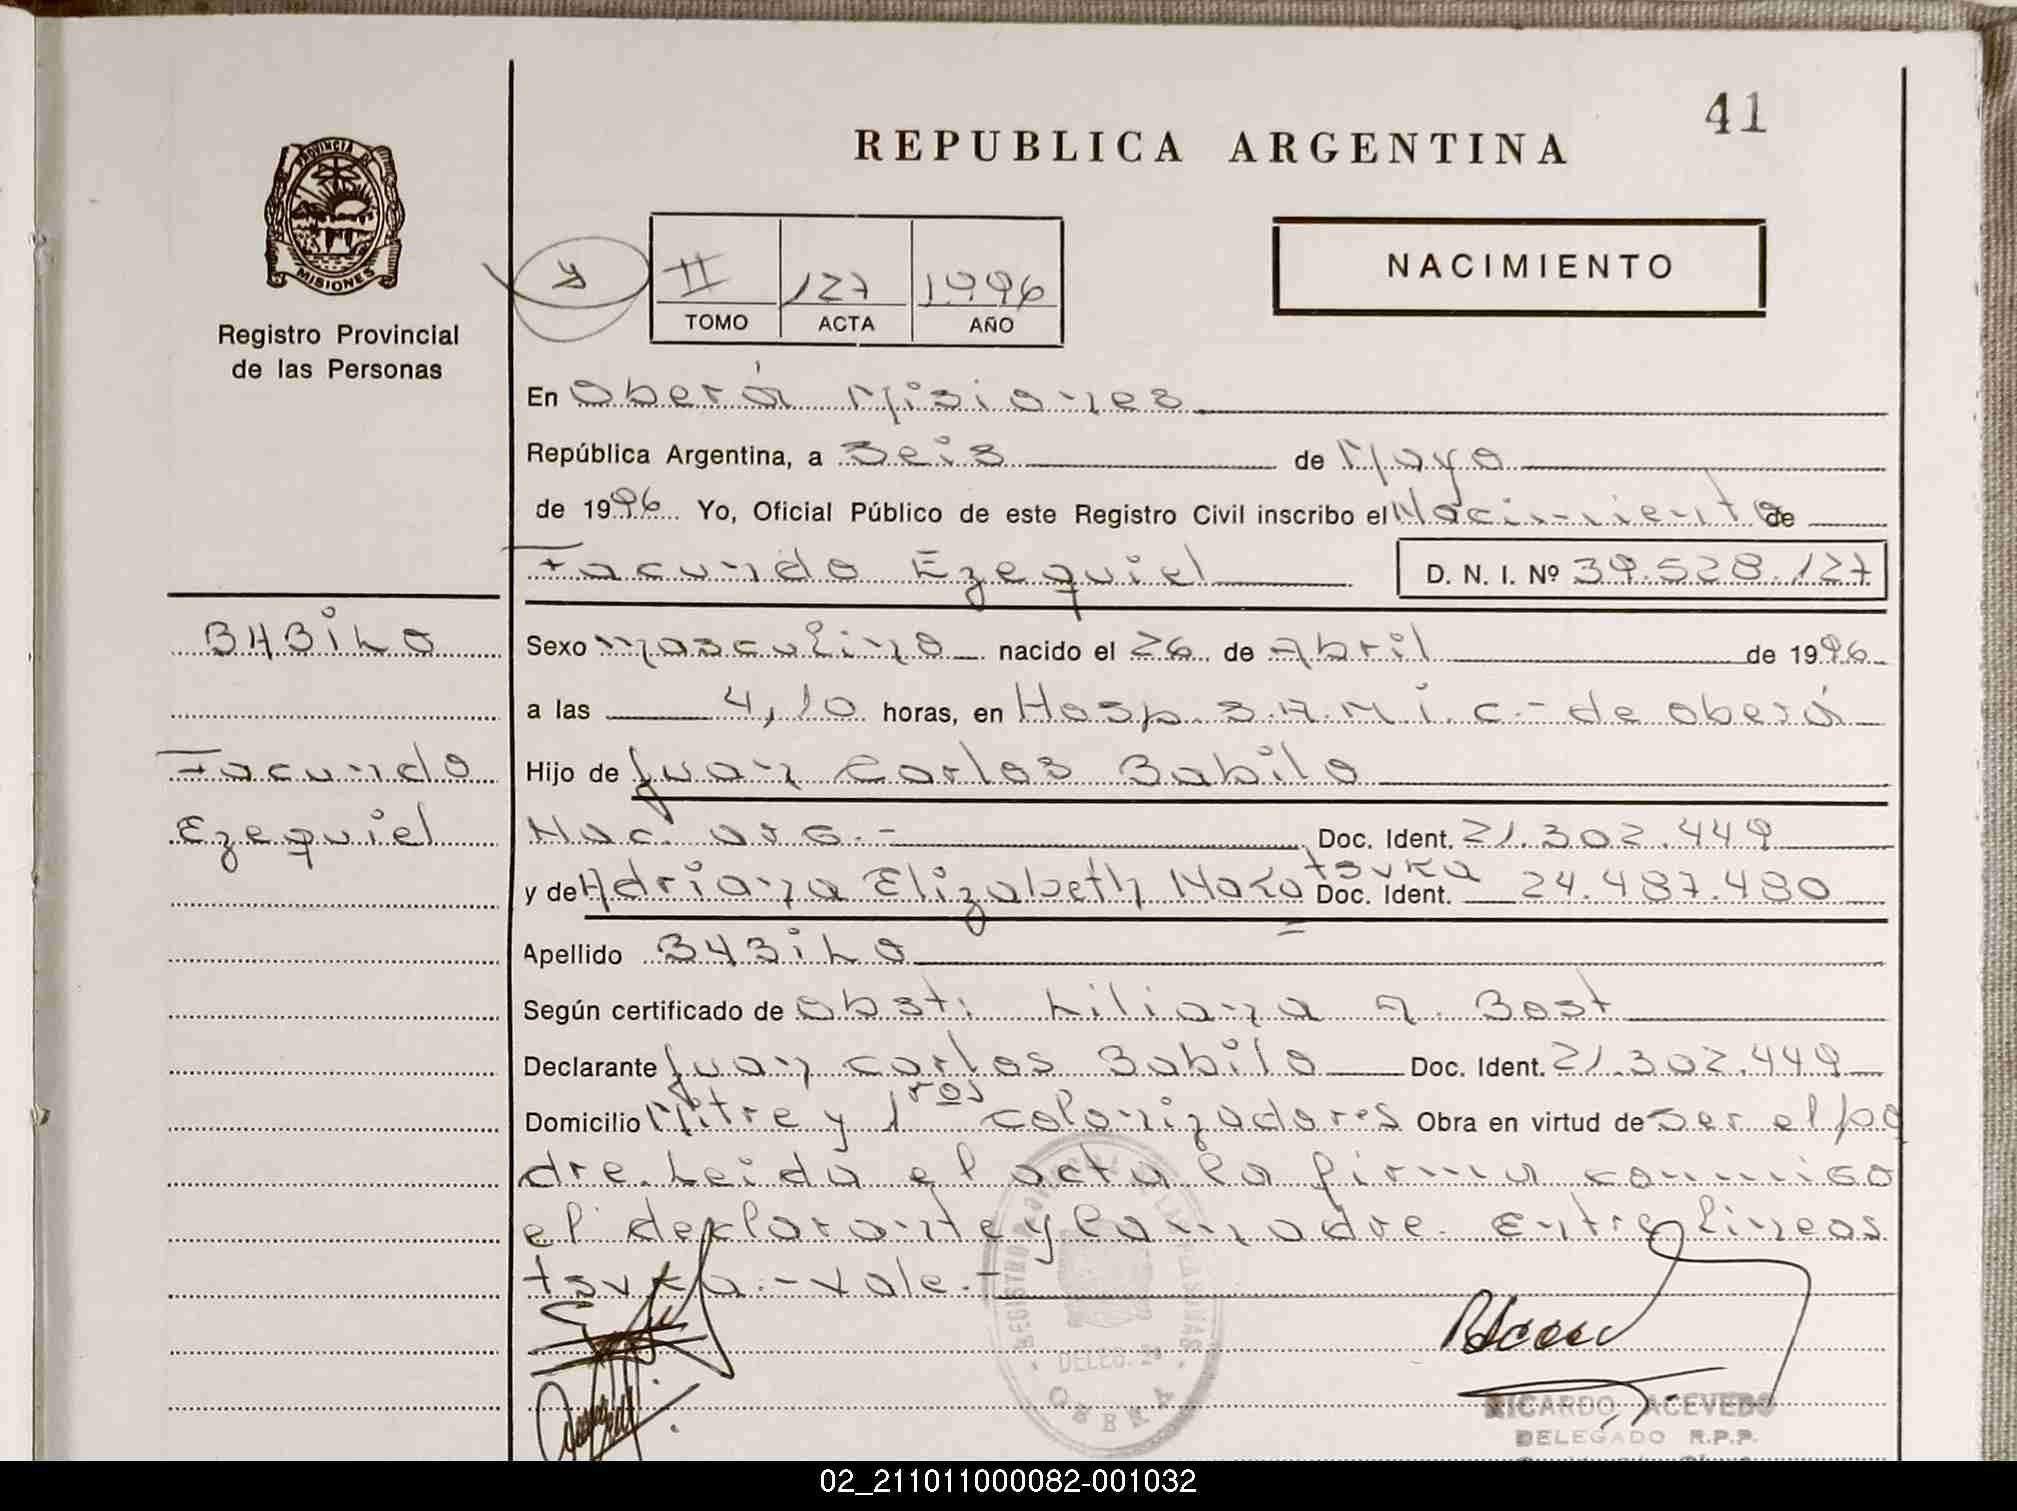 41
REPUBLICA ARGENTINA
PROVINCIA DE
MISIONES
Registro Provincial
de las Personas
II 127 1996
TOMO ACTA AÑO
NACIMIENTO
En Oberá Misiones
República Argentina, a Seis de Mayo
de 1996 Yo, Oficial Público de este Registro Civil inscribo el Nacimiento de
Facundo Ezequiel D. N. I. Nº 39.528.127
BABILO
Facundo
Ezequiel
Sexo Masculino nacido el 26 de Abril de 1996
a las 4,10 horas, en Hosp. S.A.M.i.c.- de Oberá
Hijo de Juan Carlos Babilo
Nac. arg.- Doc. Ident. 21.302.449
y de Adriana Elizabeth tsuka Doc. Ident. 24.487.480
Apellido BABILO
Según certificado de Obst. Liliana A. Bost
Declarante Juan Carlos Babilo Doc. Ident. 21.302.449
Domicilio Mitre y 1ros colonizadores Obra en virtud de ser el pa
dre. Leida el acta la firma conmigo
el declarante y la madre. Entre lineas
tsuka.- vale.-
REGISTRO PROVINCIAL DE LAS PERSONAS
DELEG.
OBERA
RICARDO ACEVEDO
DELEGADO R.P.P.
02_211011000082-001032